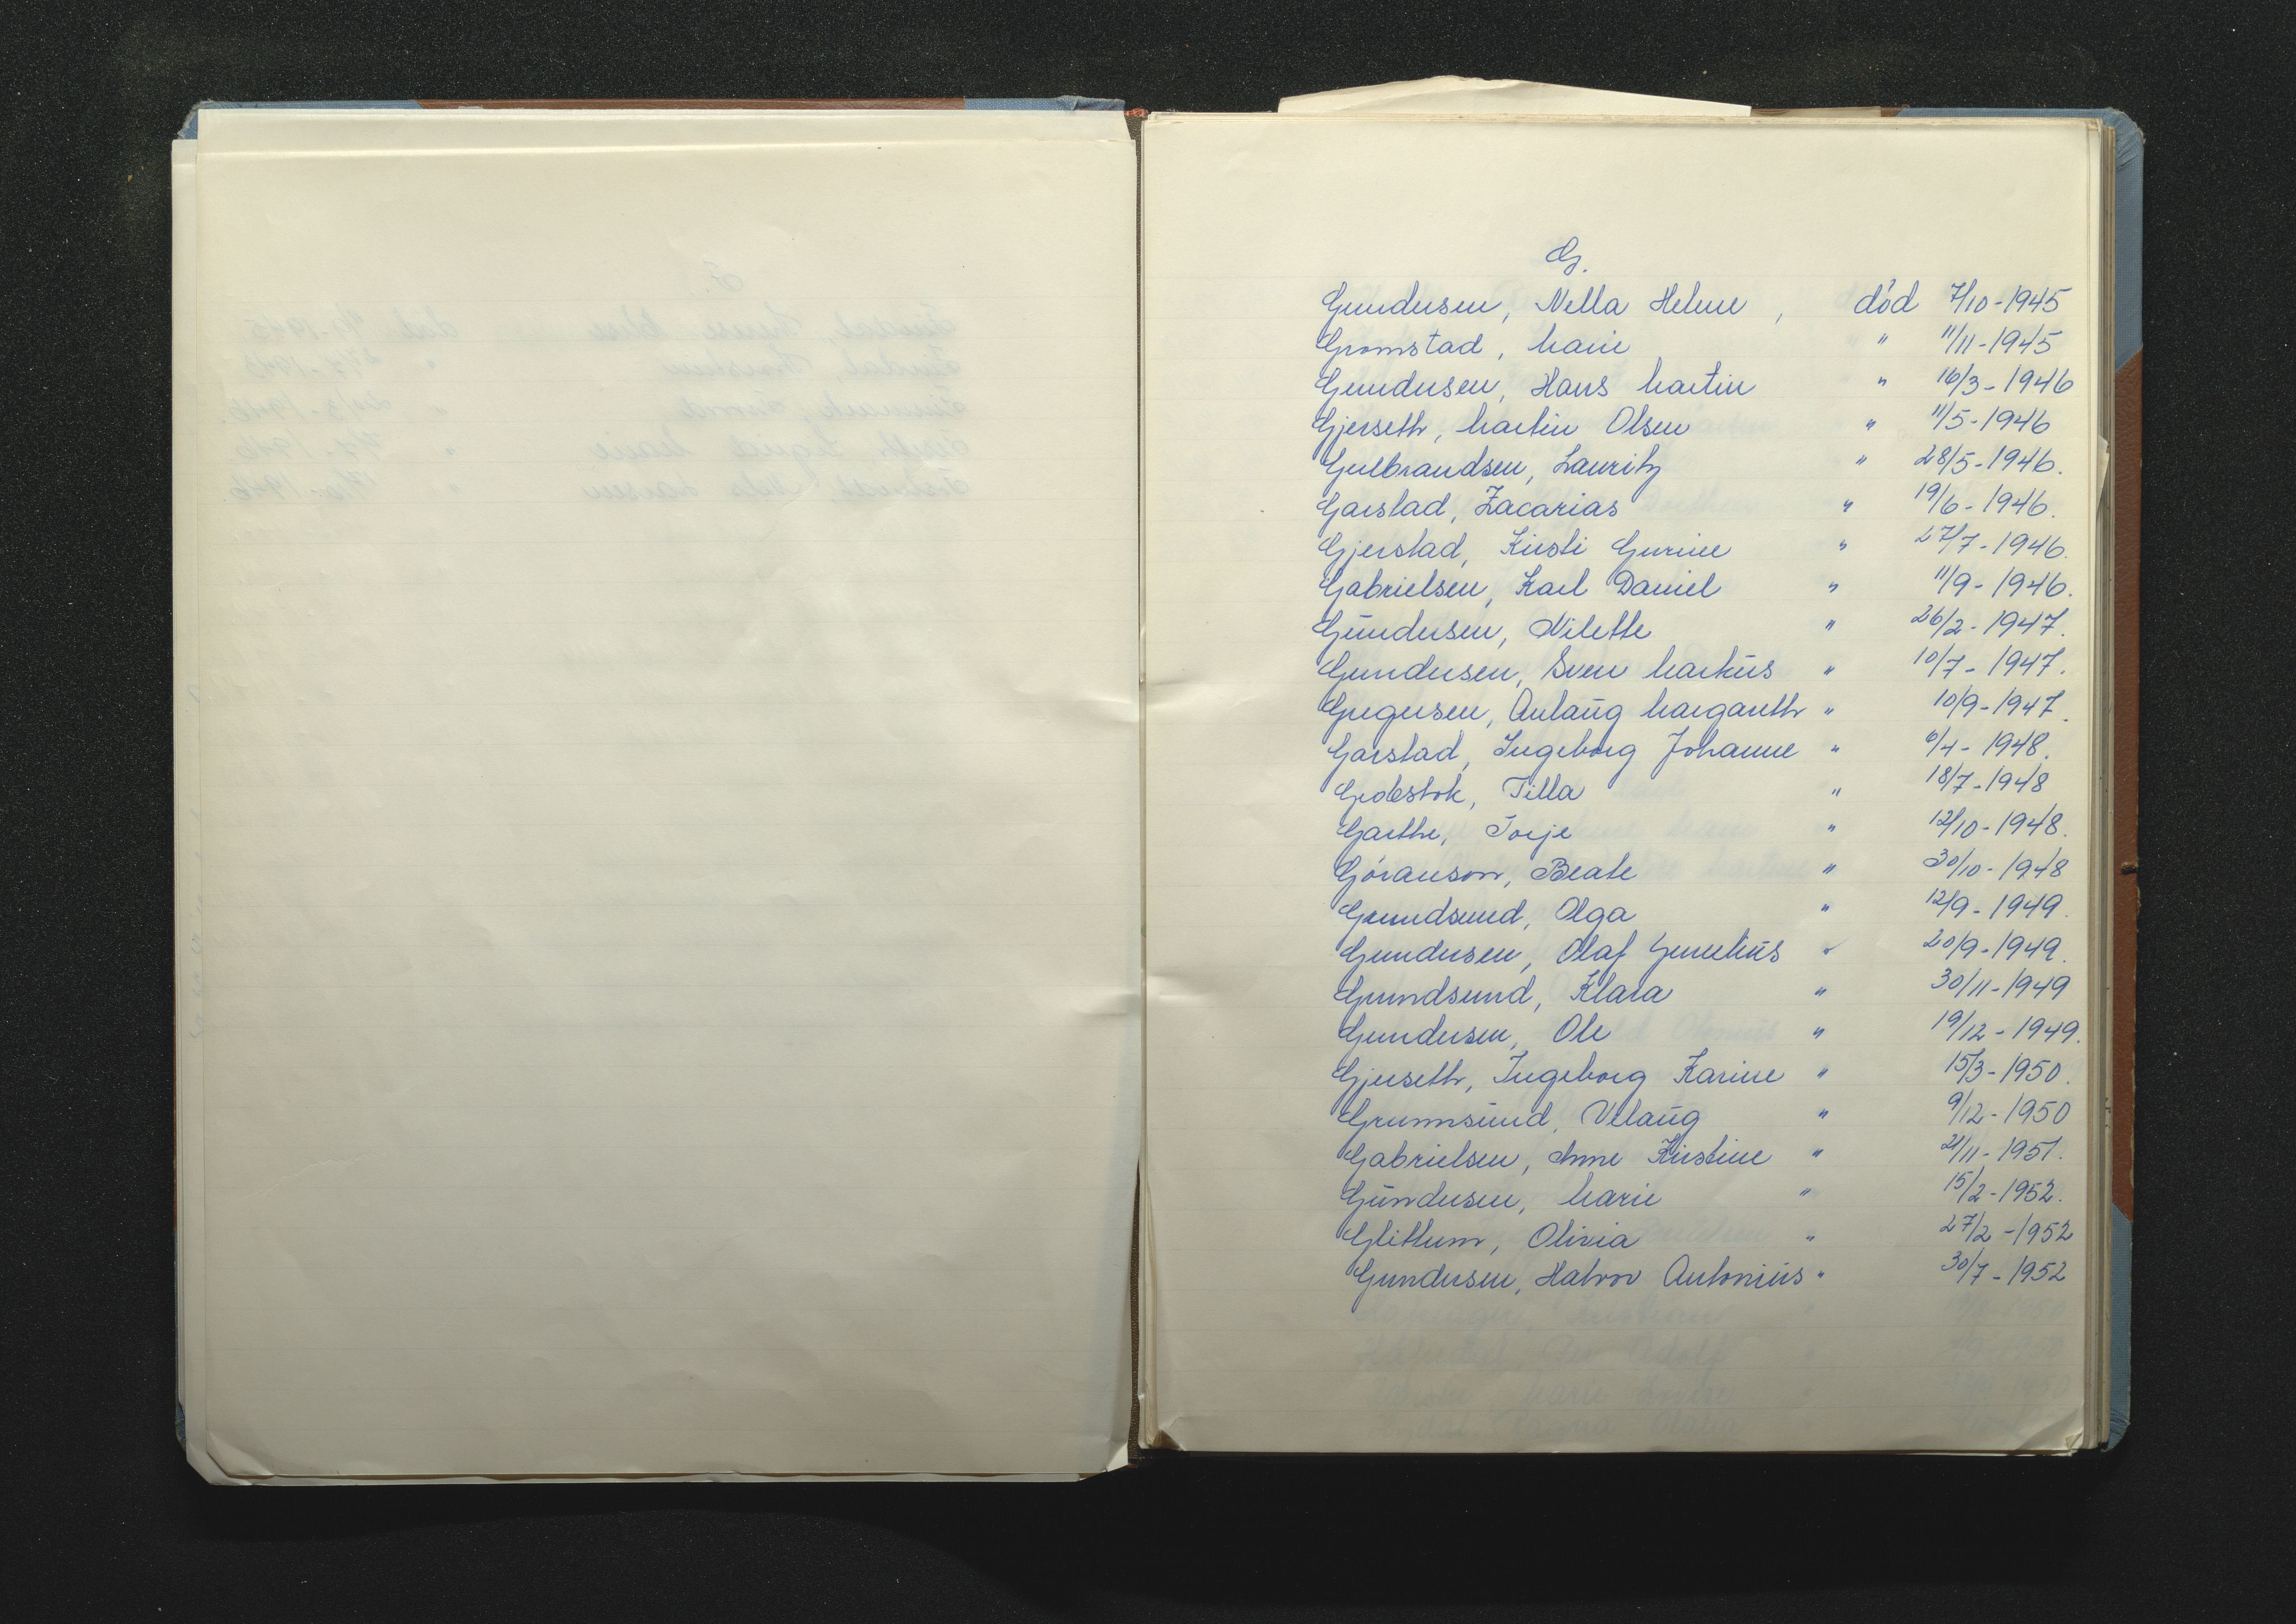 G.
Gundersen, Nella Helene, død 7/10-1945
Gromstad, Marie " 11/11-1945
Gundersen, Hans Martin " 16/3-1946
Gjerseth, Martin Olsen " 11/5-1946
Gulbrandsen, Lauritz " 28/5-1946.
Garstad, Zacarias " 19/6-1946.
Gjerstad, Kirsti Gurine " 27/7-1946.
Gabrielsen, Karl Daniel " 11/9-1946.
Gundersen, Nilette " 26/2-1947.
Gundersen, Sven Markus " 10/7-1947.
Gregersen, Anlaug Margareth " 10/9-1947.
Garstad, Ingeborg Johanne " 6/4-1948.
Grobstok, Tilla " 18/7-1948
Garthe, Torje " 12/10-1948.
Göranson, Beate " 30/10-1948
Grundsund, Olga " 12/9-1949.
Gundersen, Olaf " 20/9-1949.
Grundsund, Klara " 30/11-1949
Gundersen, Ole " 19/12-1949.
Gjerseth, Ingeborg Karine " 15/3-1950.
Grumsund, Velaug " 9/12-1950
Gabrielsen, Anne Kirstine " 21/11-1951.
Gundersen, Marie " 15/2-1952.
Glittum, Olivia " 27/2-1952
Gundersen, Halvor Antonius " 30/7-1952